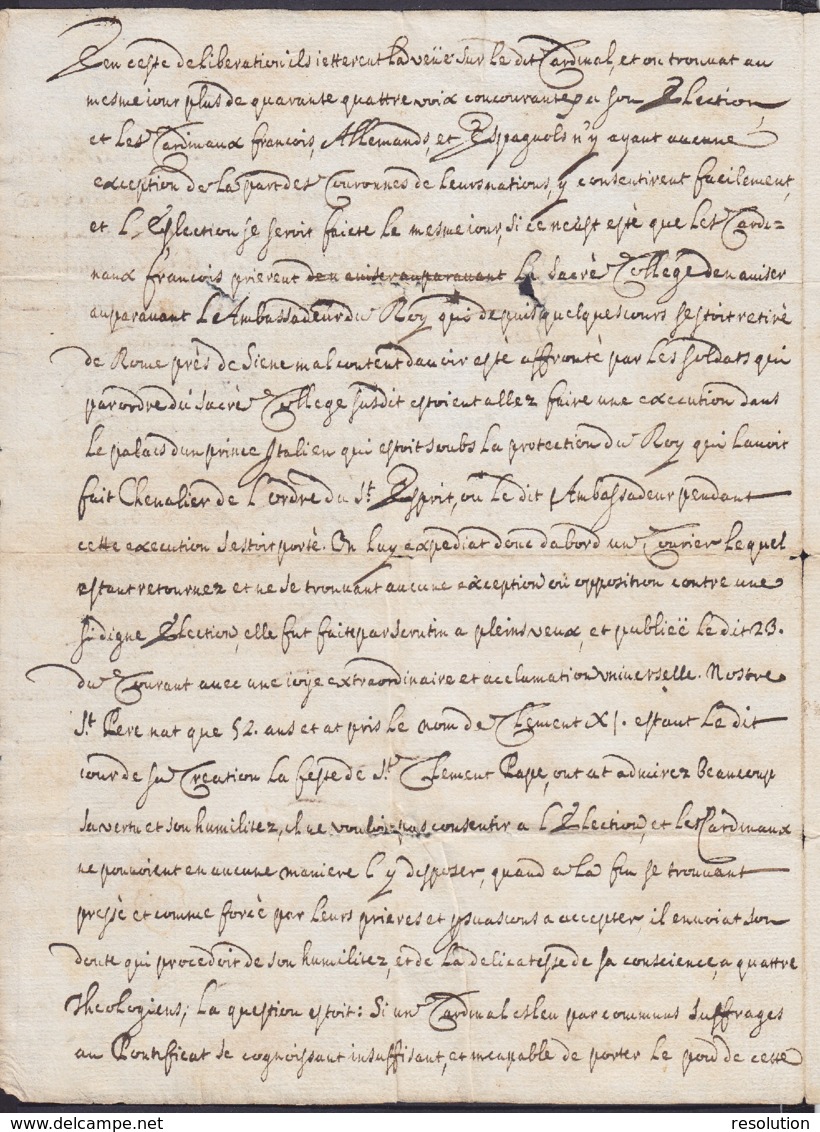 en ceste deliberation ils ietterent la veüe sur le dit Cardinal, et on trouvat au
mesme iour plus de quarante quattre voix concourantes a son Election,
et les Cardinaux francois, Allemands, et Espagnols n'y ayant aucune
exception de la part des Couronnes de leurs nations, y consentirent facilement,
et l'Eslection se seroit faicte le mesme iour, si ce neust esté que les Cardi=
naux francois prierent den aviser auparavant le Sacré College den aviser
auparavant l'Ambassadeur du Roy qui depuis quelques iours sestoit retiré
de Rome prés de Siene mal content davoir esté affronté par les soldats qui
par ordre du Sacré College susdit estoient allez faire une execution dans
le palais dun prince Italien qui estoit soubs la protection du Roy qui lavoit
fait Chevalier de l'ordre du St. Esprit, ou le dit Ambassadeur pendant
cette execution sestoit porté. On luy expediat donc dabord un Courier lequel
estant retournez et ne se trouvant aucune exception oú opposition contre une
si digne Election, elle fut faite par scrutin a pleins veux, et publieë le dit 23.
du Courant avec une ioye extraordinaire et acclamation universelle. Nostre
St. Pere nat que 52. ans et at pris le nom de Clement XI. estant le dit
iour de sa Creation la feste de St. Clement Pape, ont at admirez beaucoup
sa vertu et son humilitez, il ne vouloit pas consentir a l'Election, et les Cardinaux
ne pouvoient en aucune maniere l'y disposer, quand a la fin se trouvant
pressé et comme forcé par leurs prieres et psuasions a accepter, il envoiat son
doute qui procedoit de son humilitez, et de la delicatesse de sa conscience, a quattre
Theologiens; la question estoit: Si un Cardinal esleu par communs suffrages
au Pontificat se cognoissant insuffisant, et incapable de porter le poid de cette
resolution